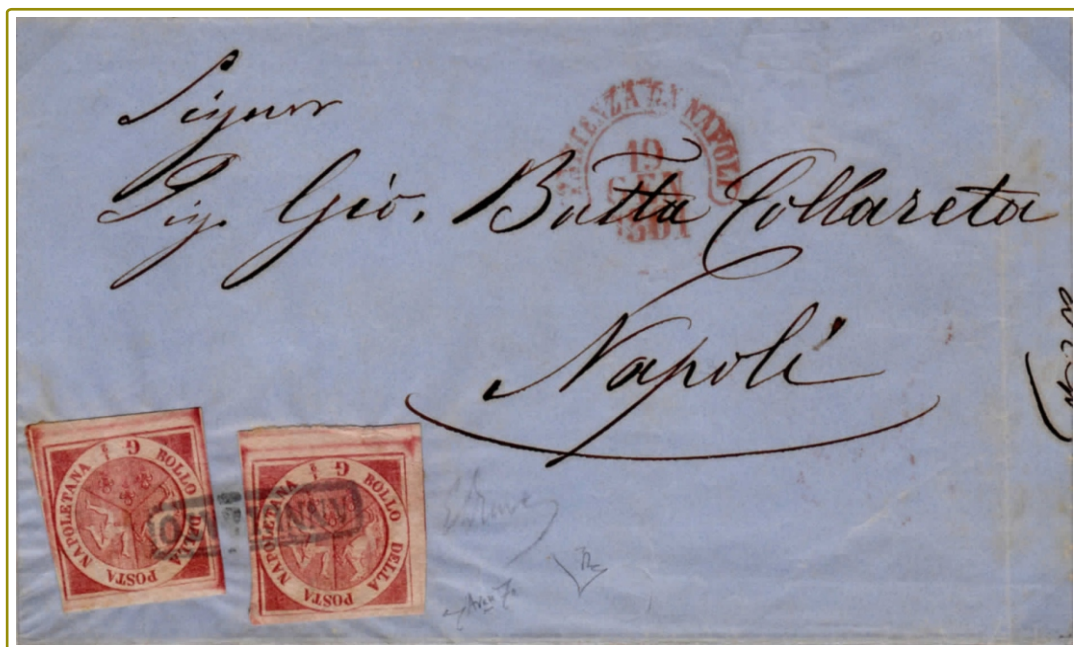 Signor
Sig. Gio. Batta Collareta
Napoli
PARTENZA DA NAPOLI
19
GEN
1861
G
BOLLO DELLA POSTA NAPOLETANA
G
BOLLO DELLA POSTA NAPOLETANA
ANNULLATO